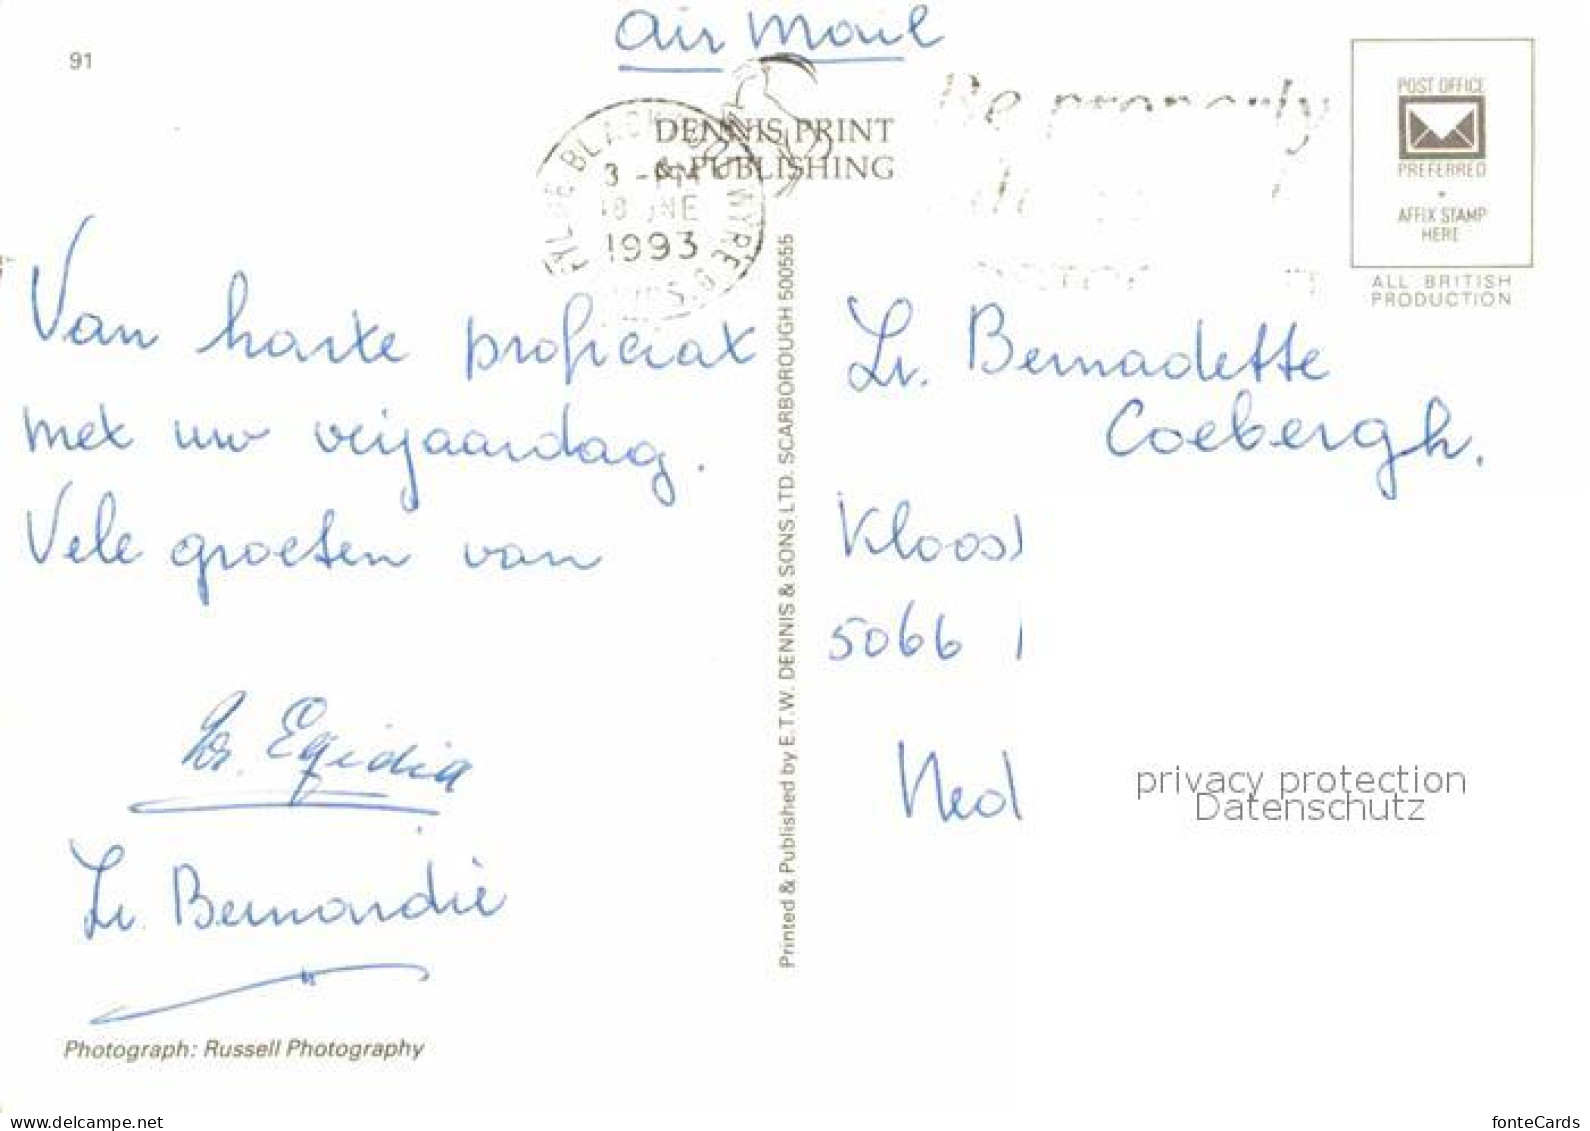 91
air mail
DENNIS PRINT
& PUBLISHING
3 - PM
1993
POST OFFICE
PREFERRED
AFFIX STAMP
HERE
ALL BRITISH
PRODUCTION
Van harte proficiat
met uw verjaardag.
Vele groeten van
Zr. Egidia
Zr. Bernardie
Photograph: Russell Photography
Printed & Published by E.T.W. DENNIS & SONS LTD. SCARBOROUGH 500555
Zr. Bernadette
Coebergh.
Kloost
5066
Ned
privacy protection
Datenschutz
www.delcampe.net
fonteCards